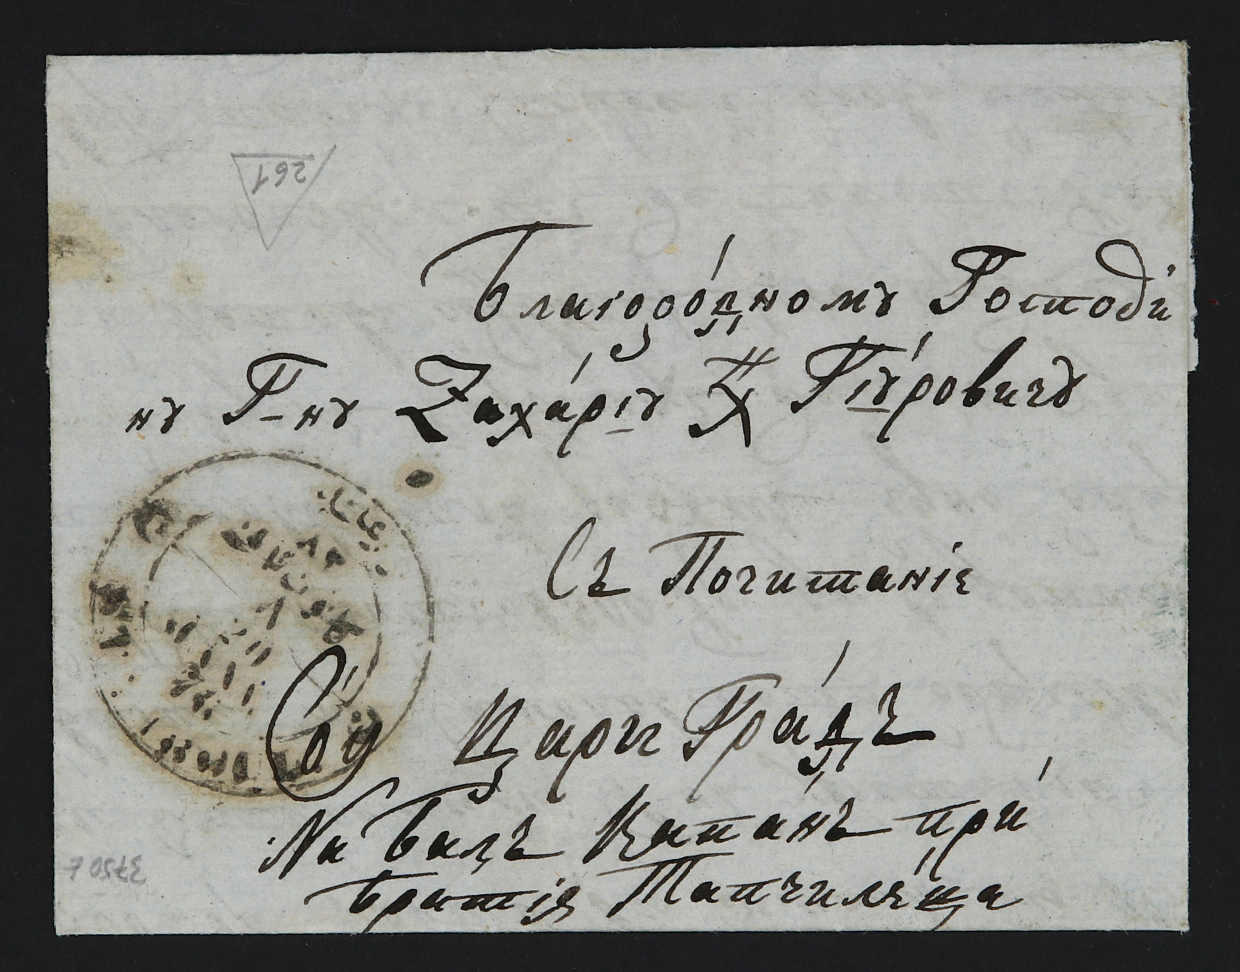 261
Благородномꙋ Господи
нꙋ Г-нꙋ Захарiꙋ Х Гюровичꙋ
Съ Почитанiе
У Цариградъ
На Балъ Капанъ при
братiя Тапчилеща
3750